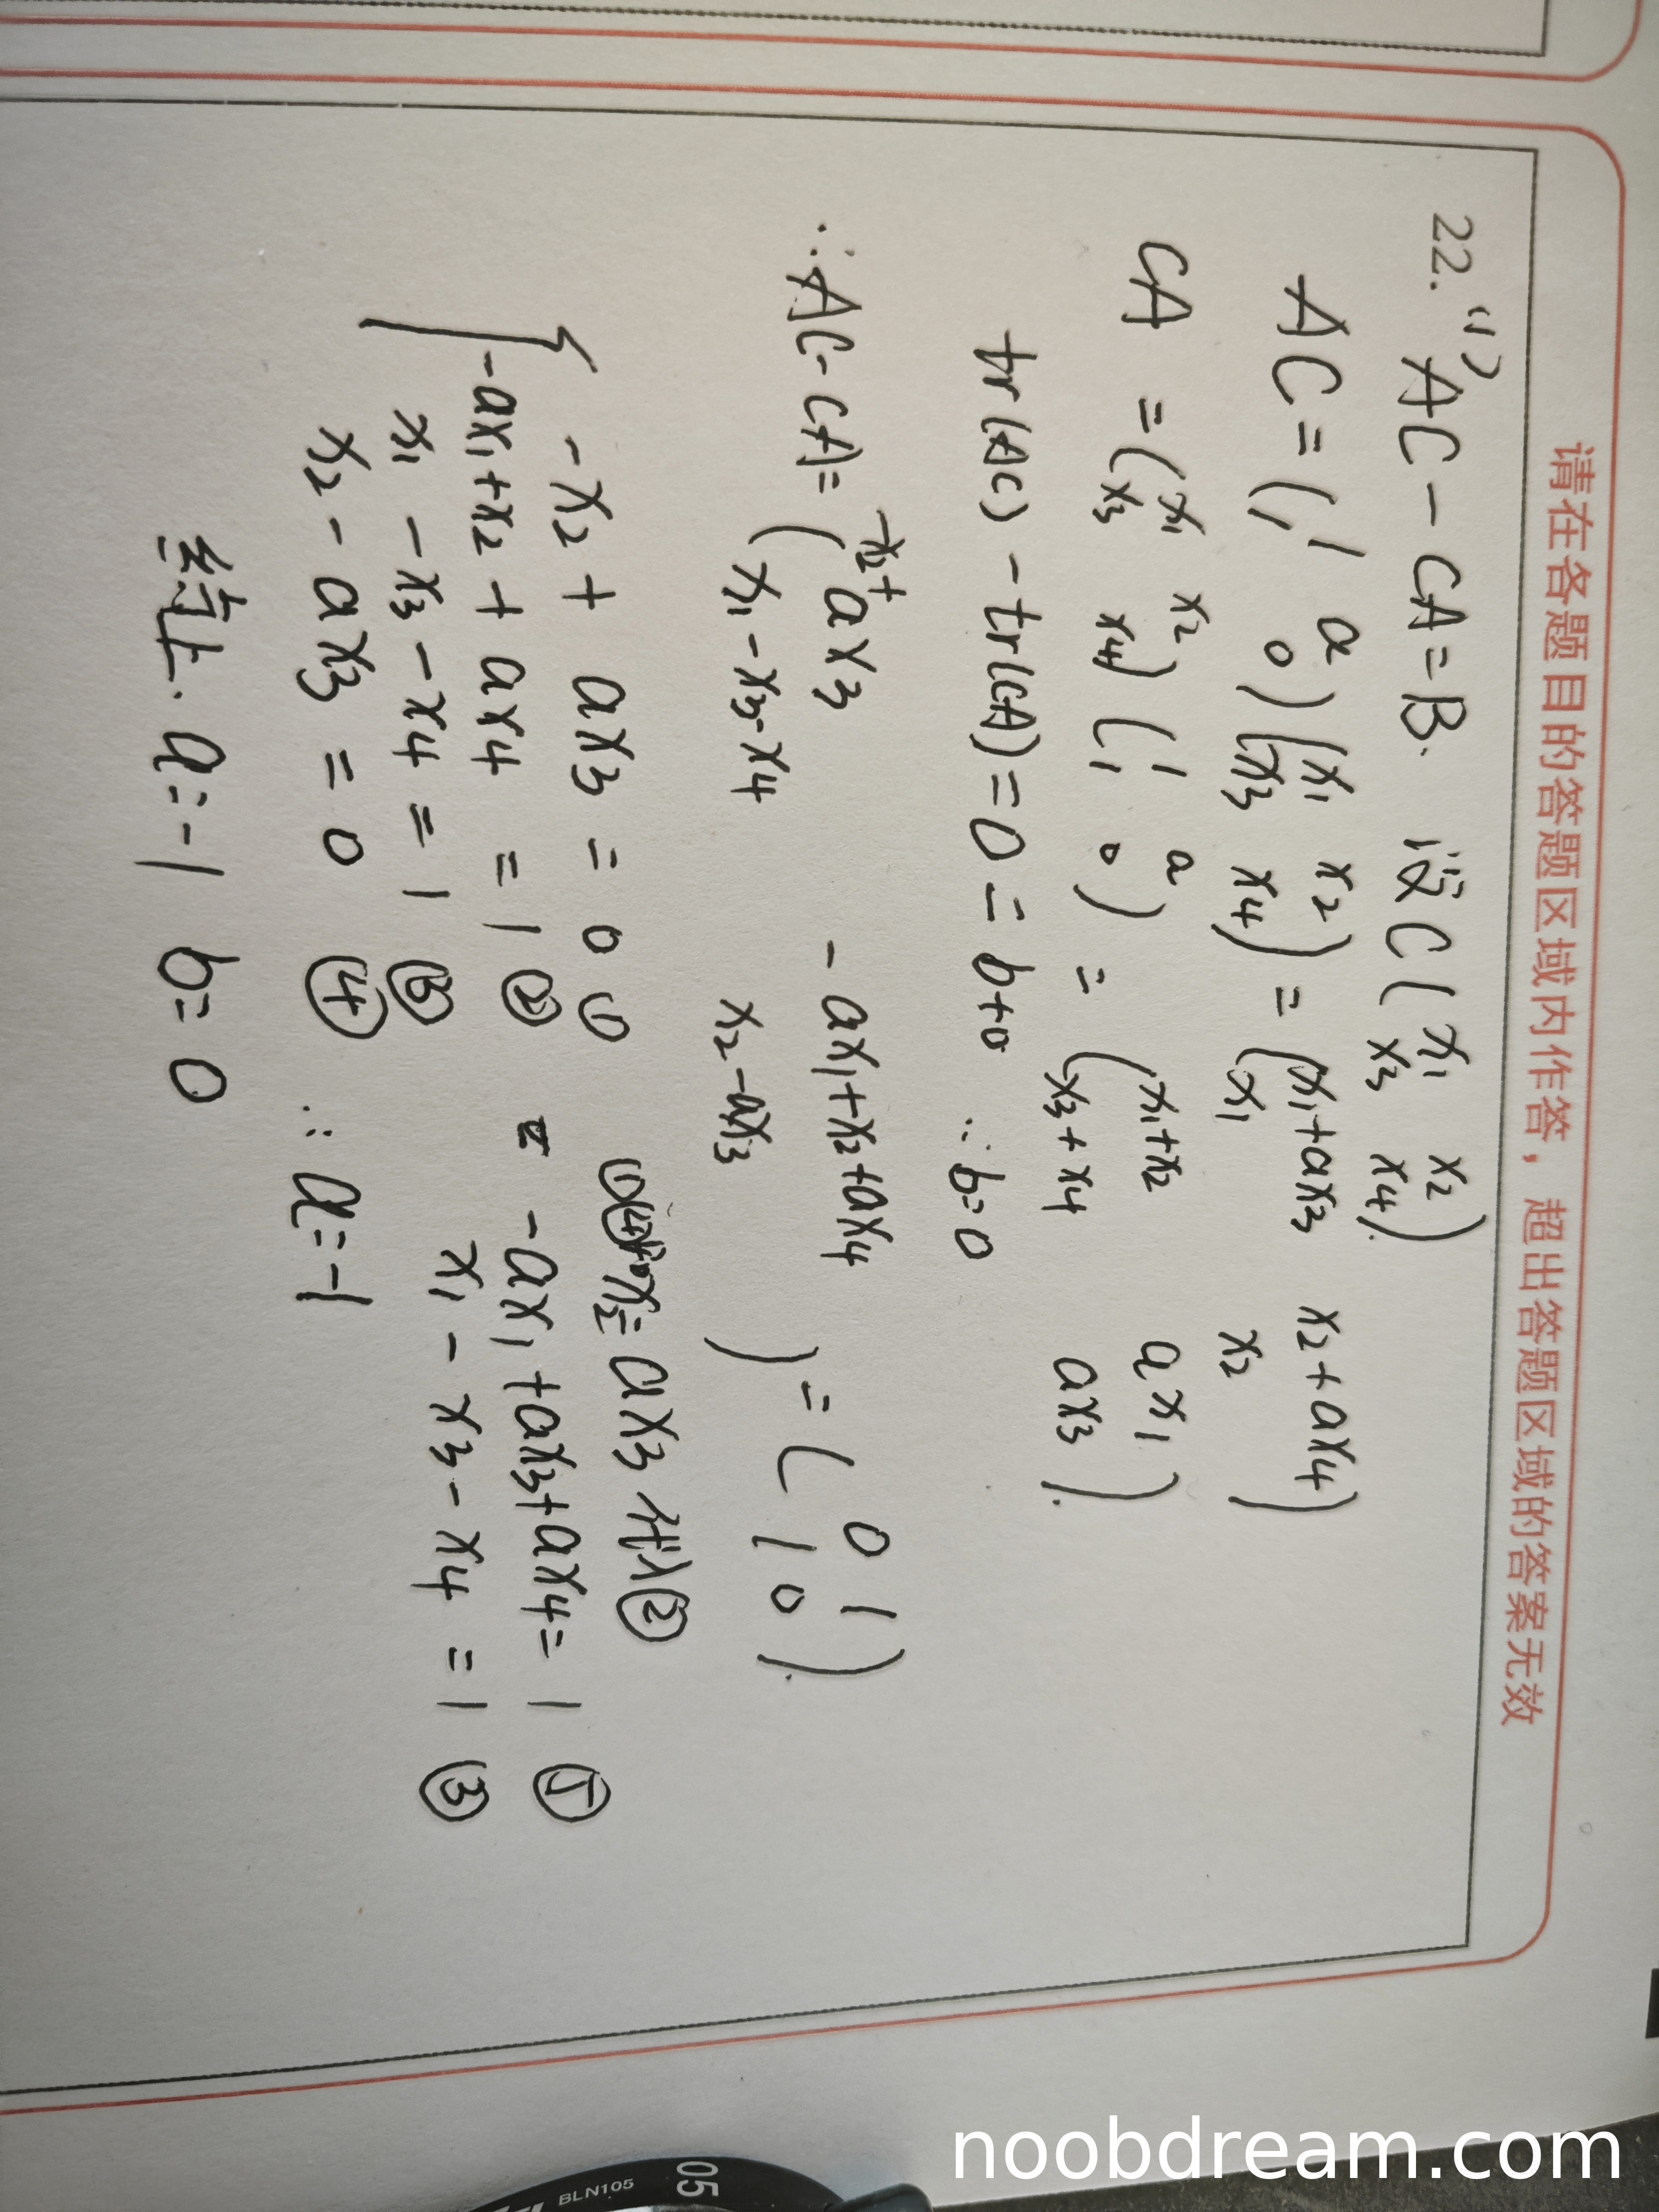 请在各题目的答题区域内作答，超出答题区域的答案无效
22. (1) AC - CA = B. 设C(x1 x2
x3 x4).
AC = (1 a
1 0)(x1 x2
x3 x4) = (x1+ax3 x2+ax4
x1 x2)
CA = (x1 x2
x3 x4)(1 a
1 0) = (x1+x2 ax1
x3+x4 ax3).
tr(AC) - tr(CA) = 0 = b+0 ∴b=0
∴AC-CA = (-x2+ax3 -ax1+x2+ax4
x1-x3-x4 x2-ax3) = (0 1
1 0).
{ -x2 + ax3 = 0 ① x2 = ax3 代入②
-ax1+x2+ax4 = 1 ② = -ax1+ax3+ax4 = 1 ⑤
x1 - x3 - x4 = 1 ③ x1 - x3 - x4 = 1 ③
x2 - ax3 = 0 ④ ∴ a=-1
综上. a=-1 b=0
05
BLN105
noobdream.com